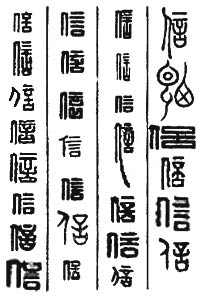 信信信信信信
信信信信信信信
信信信信信信信
信信信信信信信信